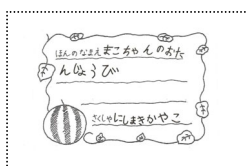 ほんのなまえまこちゃんのおた
んじょうび
さくしゃにしまきかやこ